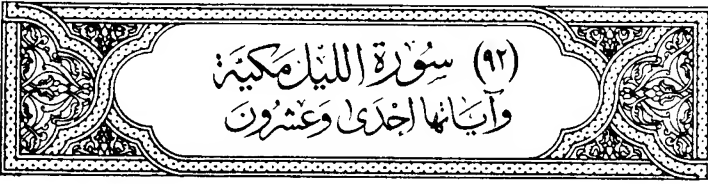 (٩٢) سُورَة الليل مَكيَّة
وَآيَاتها اِحْدَى وَعشرُونَ